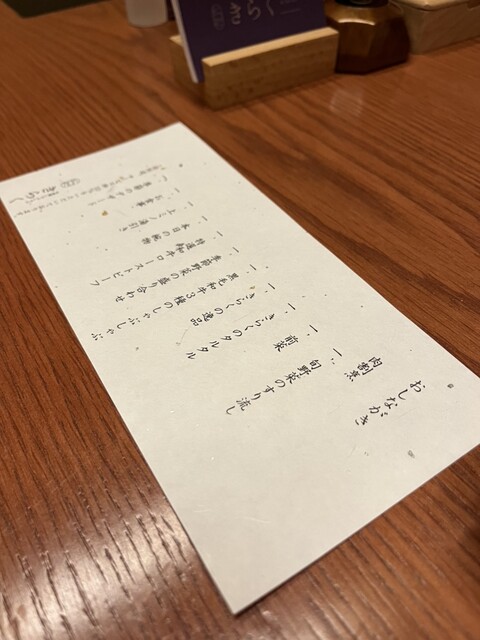 おしながき
肉割烹
一、旬野菜のすり流し
一、前菜
一、きらくのタルタル
一、きらくの逸品
一、黒毛和牛3種のしゃぶしゃぶ
一、季節野菜の盛り合わせ
一、特選和牛ローストビーフ
一、本日の鍋物
一、上ミノ湯引き
一、お食事
一、季節のデザート
きらく